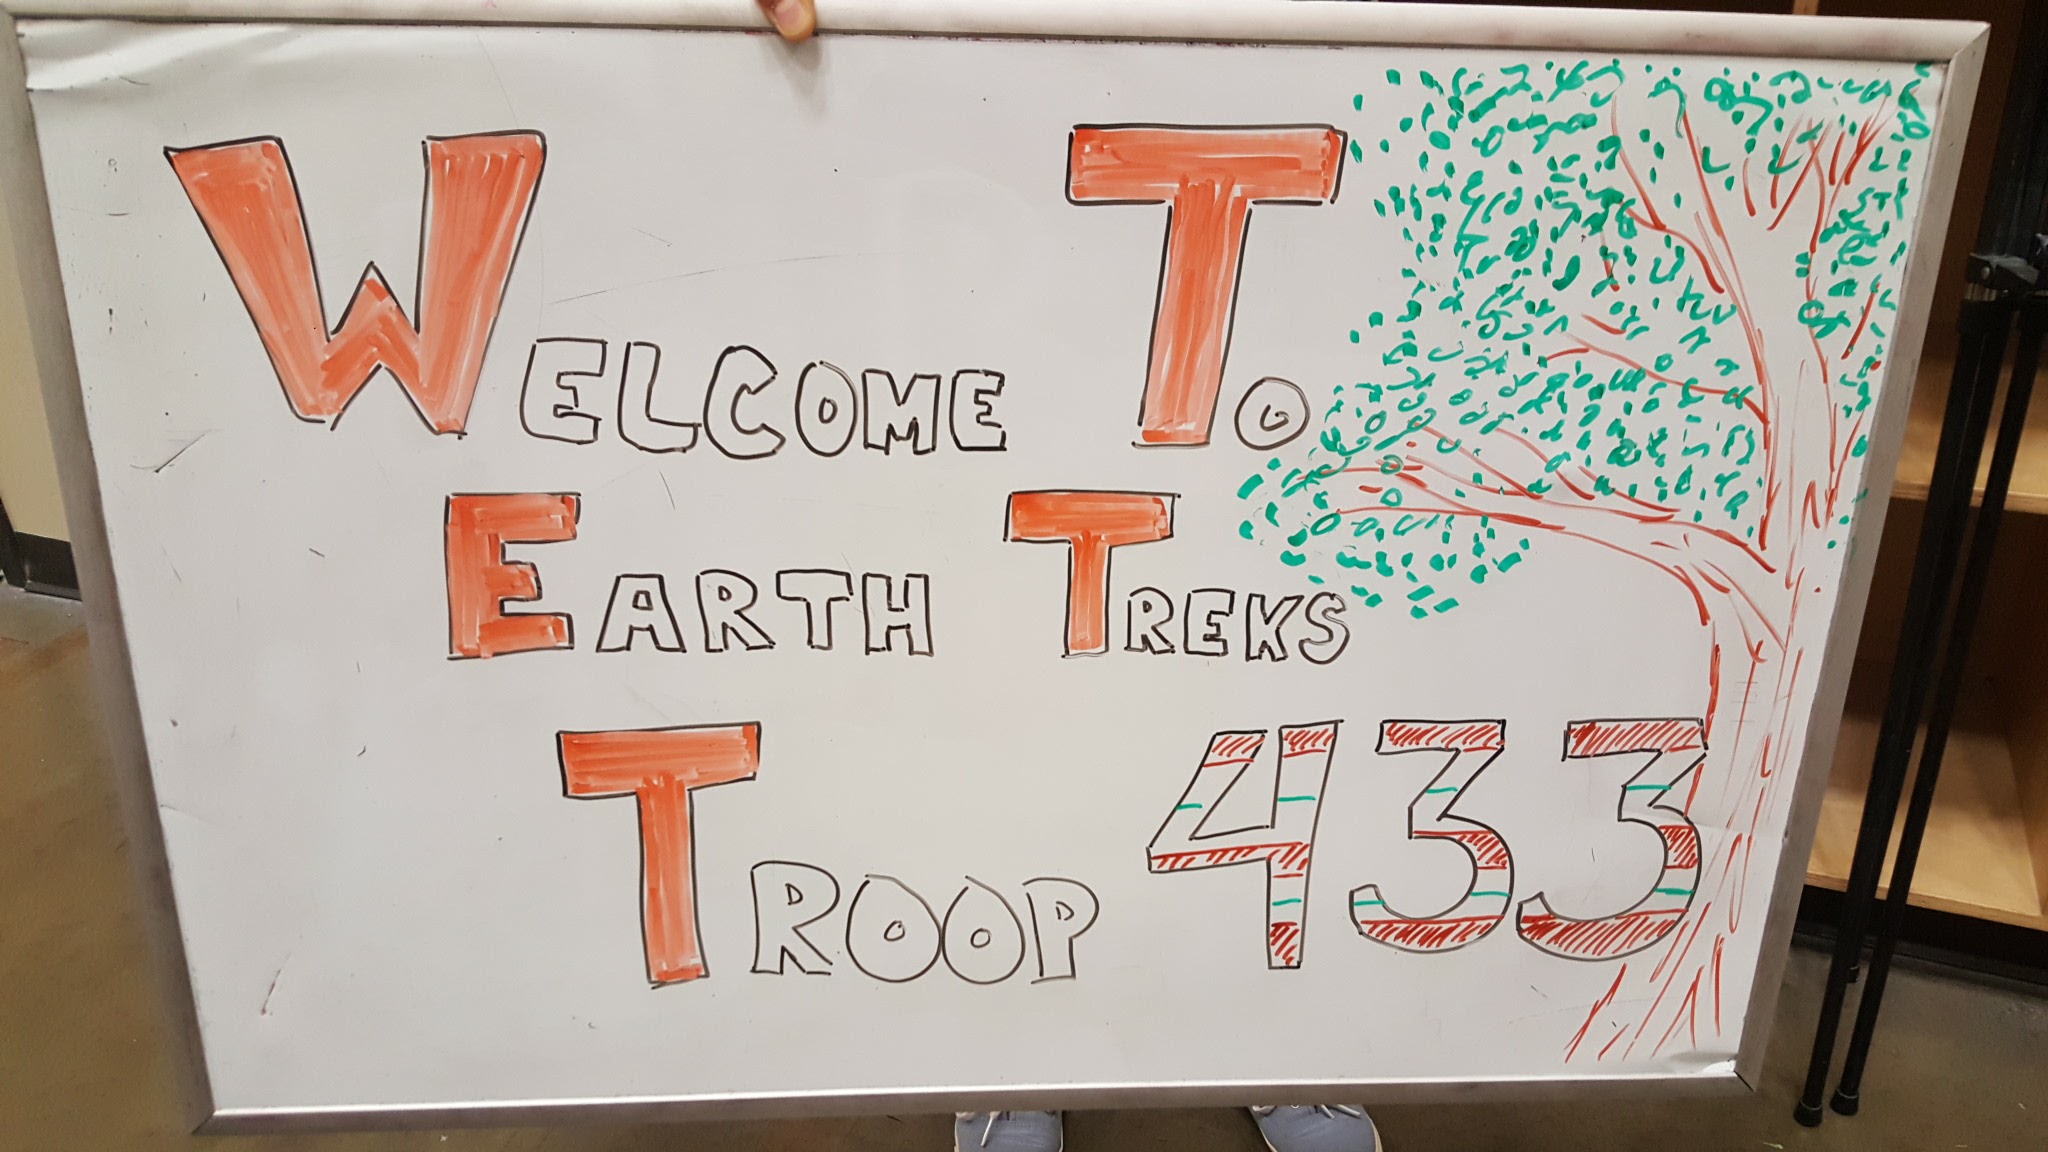 WELCOME TO
EARTH TREKS
TROOP 433